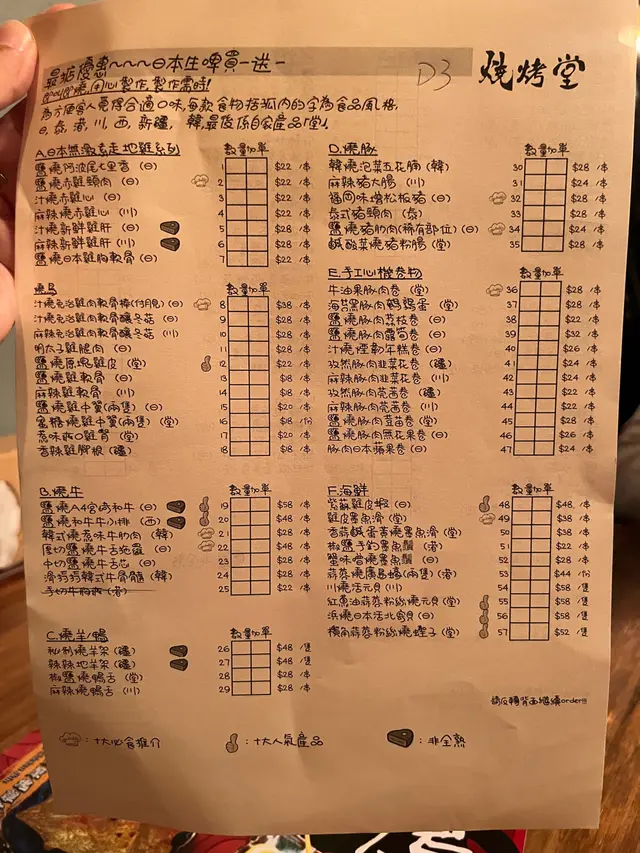 最強優惠~~~日本生啤買一送一
D3
燒烤堂
即叫即燒,用心製作,製作需時!
為方便客人覓得合適口味,每款食物括弧內的字為食品風格,
日,泰,港,川,西,新疆,韓,最後係自家產品「堂」.
A.日本無激素走地雞系列 數量加單
鹽燒阿波尾七里香 (日) 1 $22 /本
鹽燒赤雞頸肉 (日) 2 $22 /本
汁燒赤雞心 (日) 3 $22 /本
麻辣燒赤雞心 (川) 4 $22 /本
汁燒新鮮雞肝 (日) 5 $28 /本
麻辣新鮮雞肝 (川) 6 $28 /本
鹽燒日本雞胸軟骨 (日) 7 $22 /本
燒鳥 數量加單
汁燒免治雞肉軟骨棒(勺胆)(日) 8 $38 /本
汁燒免治雞肉軟骨釀冬菇 (日) 9 $28 /本
麻辣免治雞肉軟骨釀冬菇 (川) 10 $28 /本
明太子雞腿肉 (日) 11 $28 /本
鹽燒原塊雞皮 (堂) 12 $28 /本
鹽燒雞軟骨 (日) 13 $18 /本
麻辣雞軟骨 (川) 14 $18 /本
鹽燒雞中翼(兩隻) (日) 15 $20 /本
蜜糖燒雞中翼(兩隻) (堂) 16 $18 /份
惹味爽口雞腎 (堂) 17 $20 /本
香辣雞腳板 (疆) 18 $18 /本
B.燒牛 數量加單
鹽燒A4宮崎和牛 (日) 19 $58 /本
鹽燒和牛牛小排 (西) 20 $48 /本
韓式燒惹味牛肋肉 (韓) 21 $48 /本
厚切鹽燒牛舌 (日) 22 $48 /本
中切鹽燒牛舌芯 (日) 23 $28 /本
滑韓式牛骨髓 (韓) 24 $28 /本
手切牛 (港) 25 $28 /本
C.燒羊/鴨 數量加單
秘制燒羊架 (疆) 26 $48 /隻
辣辣地羊架 (疆) 27 $48 /隻
椒鹽燒鴨舌 (堂) 28 $28 /本
麻辣燒鴨舌 (川) 29 $28 /本
D.燒豚 數量加單
韓燒泡菜五花腩 (韓) 30 $28 /本
麻辣豬大腸 (川) 31 $24 /本
福岡味噌松板豬 (日) 32 $28 /本
泰式豬頸肉 (泰) 33 $28 /本
鹽燒豬肋肉(稀有部位) (日) 34 $24 /本
鹹酸菜燒豬粉腸 (堂) 35 $28 /本
E.手工心機卷物 數量加單
牛油果豚肉卷 (堂) 36 $28 /本
海苔黑豚肉鵪鶉蛋 (堂) 37 $28 /本
鹽燒豚肉荔枝卷 (日) 38 $22 /本
鹽燒豚肉露筍卷 (日) 39 $32 /本
汁燒煙肉年糕卷 (日) 40 $26 /本
孜然豚肉韭菜花卷 (疆) 41 $24 /本
麻辣豚肉韭菜花卷 (川) 42 $24 /本
孜然豚肉芫茜卷 (疆) 43 $22 /本
麻辣豚肉芫茜卷 (川) 44 $22 /本
鹽燒豚肉豆苗卷 (堂) 45 $28 /本
鹽燒豚肉無花果卷 (日) 46 $26 /本
豚肉日本蘋果卷 (日) 47 $24 /本
F.海鮮 數量加單
紫蘇雞皮蝦 (日) 48 $48 /本
雞皮墨魚滑 (堂) 49 $38 /本
香蒜鹹蛋黃墨魚滑 (堂) 50 $38 /本
椒鹽手釣墨魚鬚 (港) 51 $22 /本
蟹味噌燒墨魚鬚 (日) 52 $28 /本
蒜蓉燒廣島蠔(兩隻) (港) 53 $44 /份
川燒活元貝 (川) 54 $58 /隻
紅蔥油蒜蓉粉絲燒元貝 (堂) 55 $58 /隻
浜燒日本活北寄貝 (日) 56 $58 /隻
橫角蒜蓉粉絲燒蟶子 (堂) 57 $52 /隻
請反轉背面繼續order!!!
:十大必食推介
:十大人氣產品
:非全熟